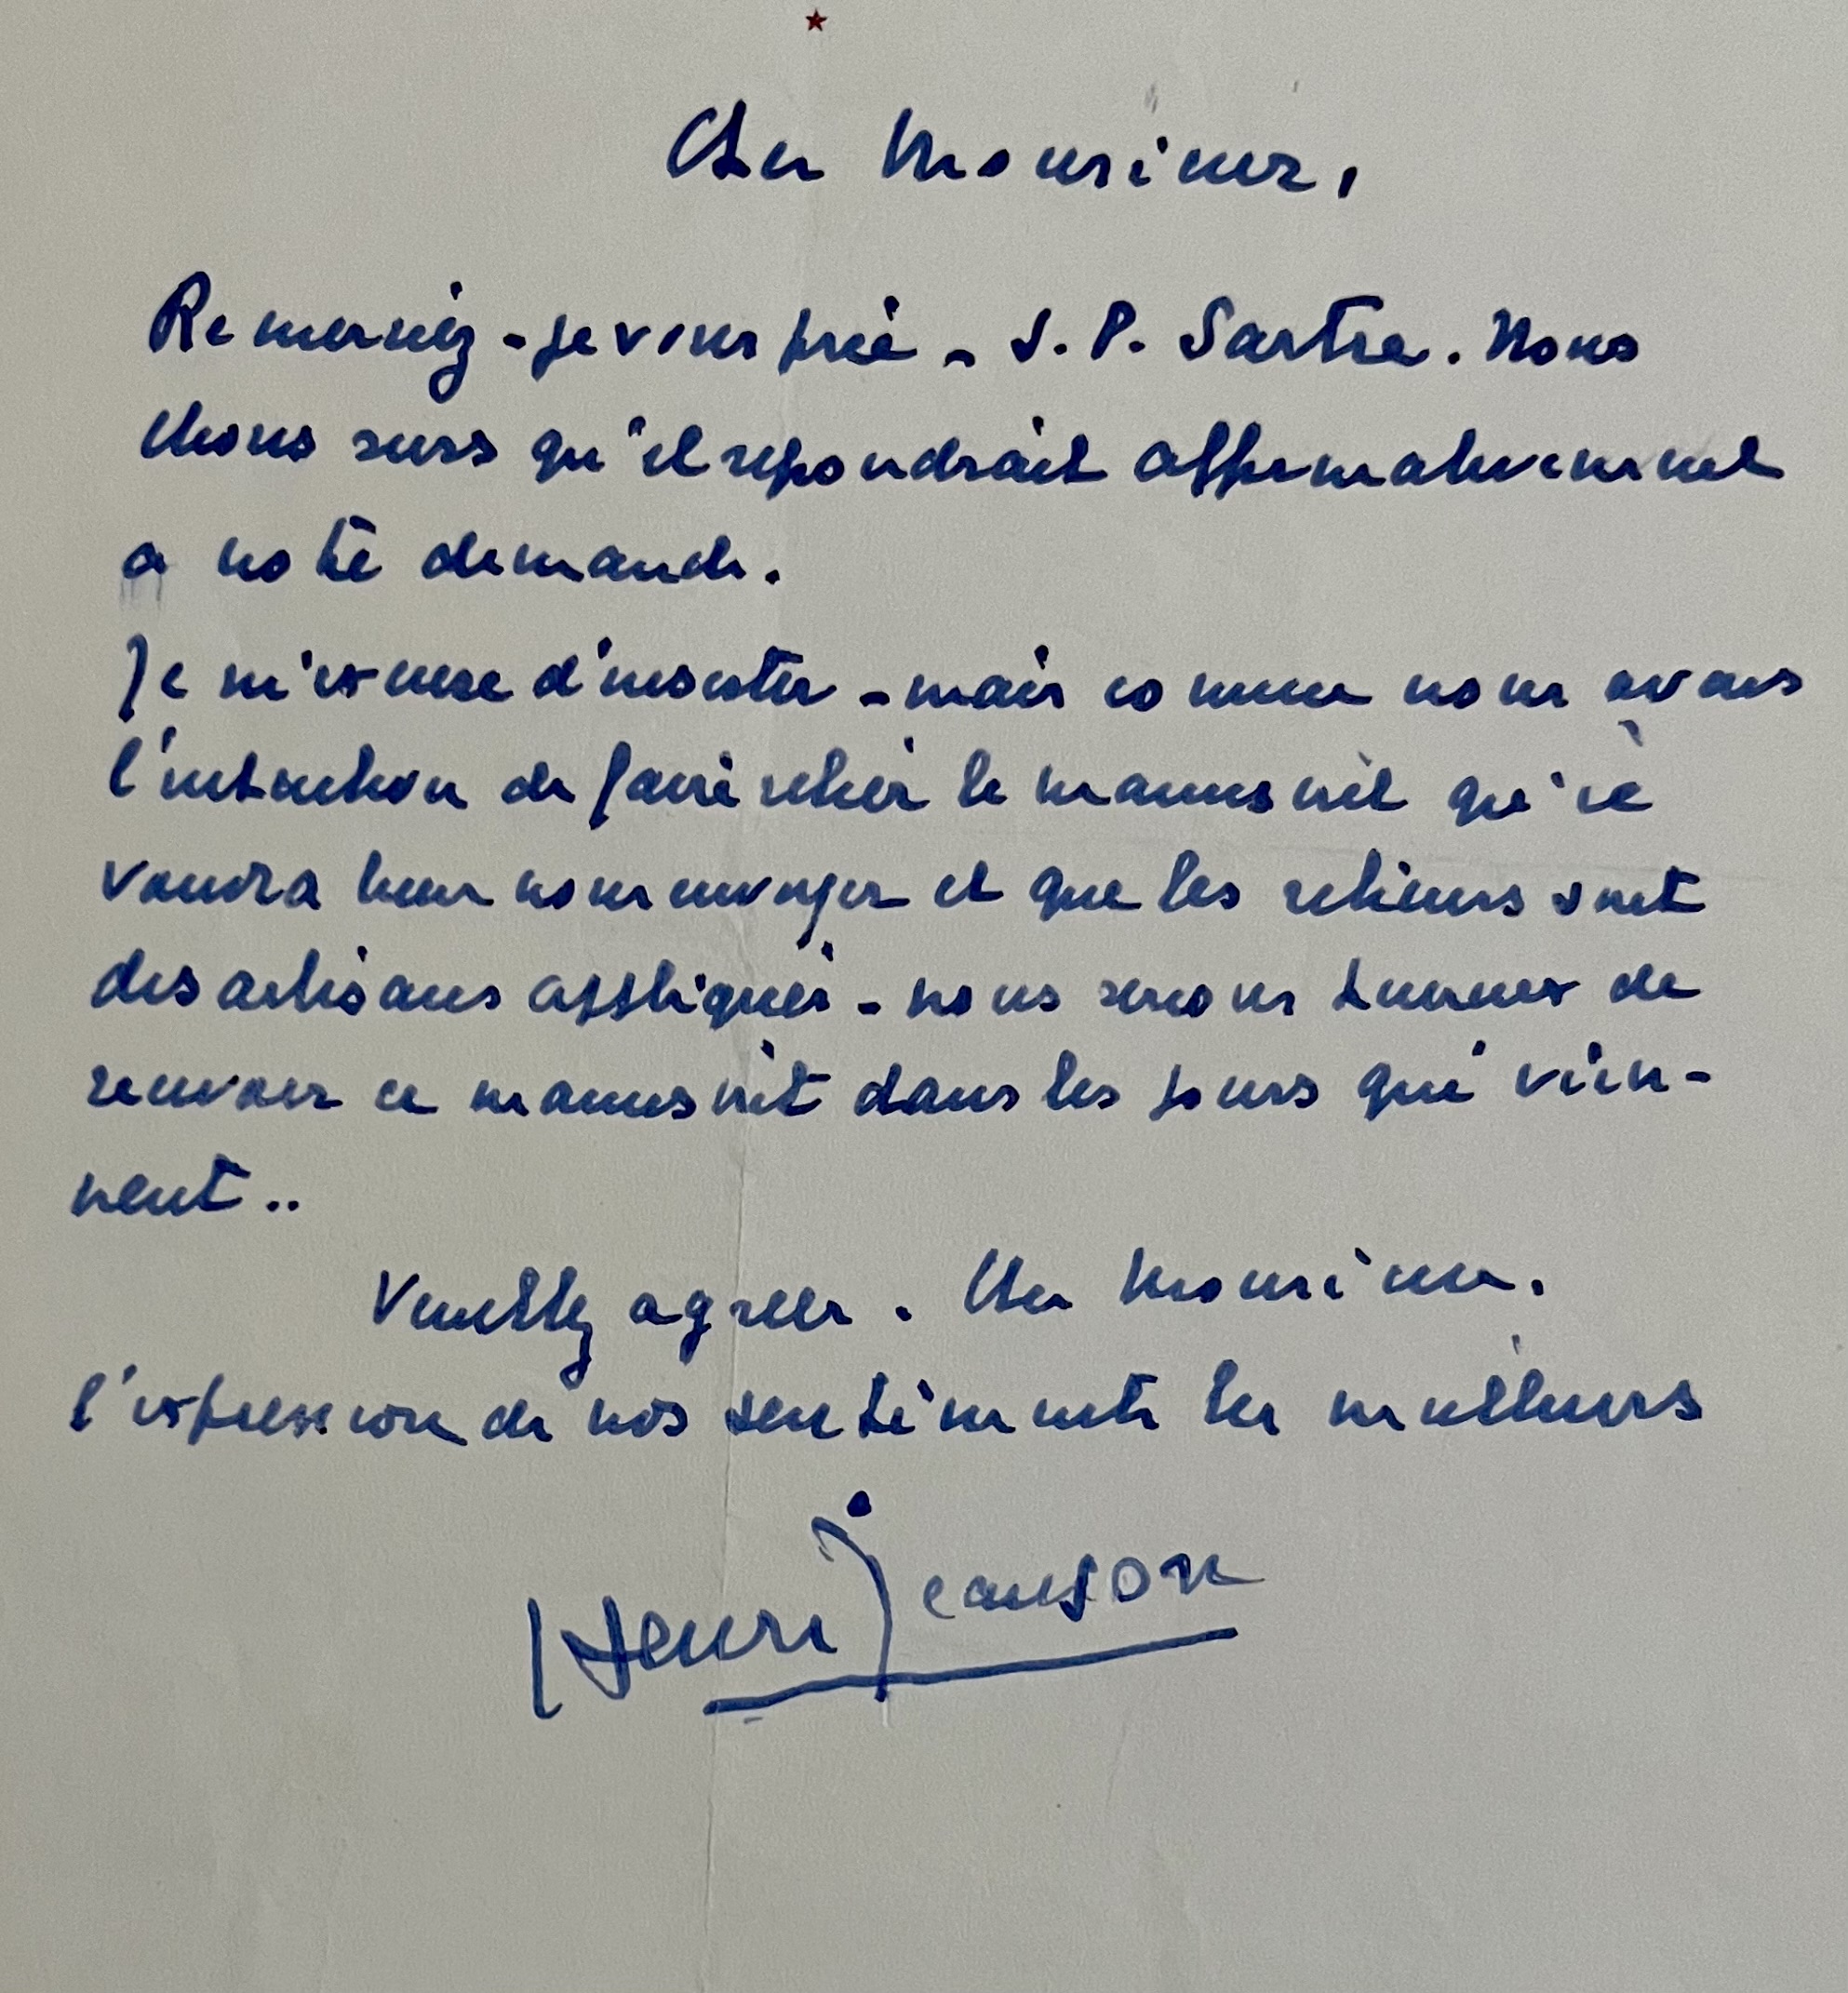 Cher Monsieur,
Remerciez - je vous prie - J. P. Sartre. Nous
étions surs qu'il repondrait affirmativement
a notre demande.
Je m'excuse d'insister - mais comme nous avons
l'intention de faire relier le manuscrit qu'il
voudra bien nous envoyer et que les relieurs sont
des artisans appliqués - nous serions heureux de
recevoir ce manuscrit dans les jours qui vien-
nent..
Veuillez agreer. Cher Monsieur.
l'expression de nos sentiments les meilleurs
Henri Jeanson